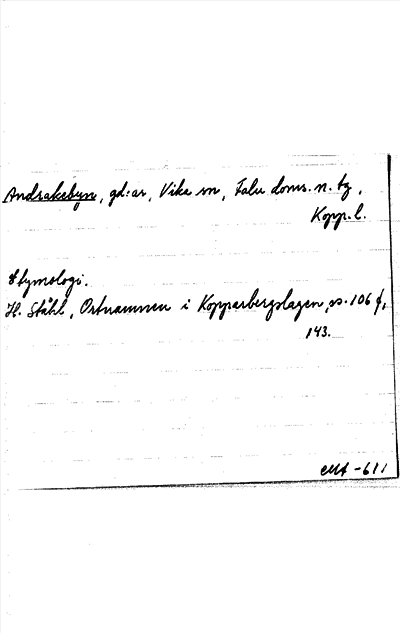 Andrakebyn, gd:ar, Vika sn, Falu doms. n. tg,
Kopp. l.
Etymologi.
H. Ståhl, Ortnamnen i Kopparbergslagen, ss. 106 f,
143.
-61